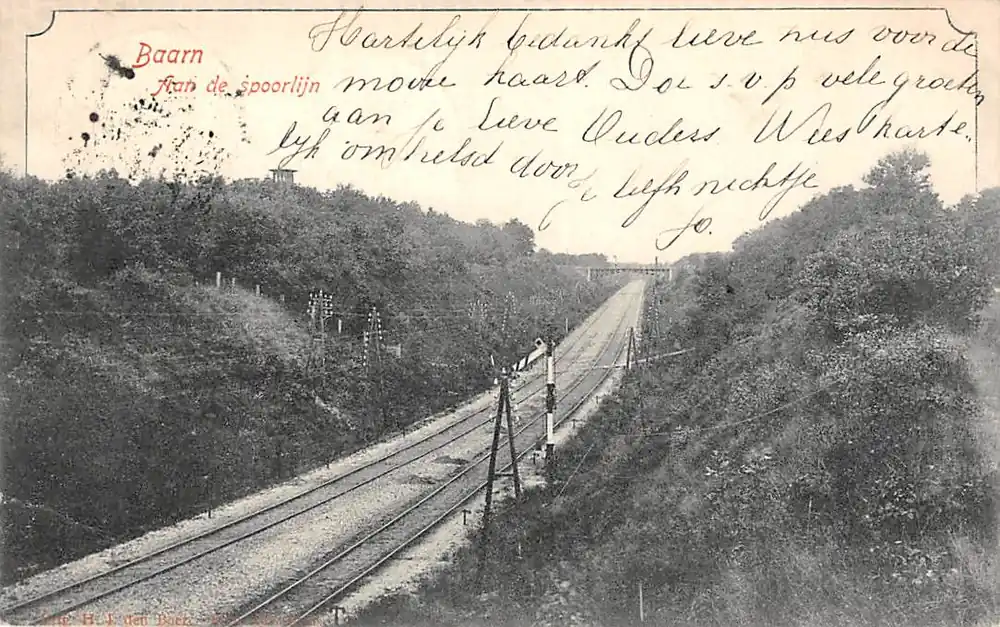 Baarn
Aan de spoorlijn
Hartelijk bedankt lieve nus voor de
mooie kaart. Doe s.v.p vele groeten
aan je lieve Ouders. Wees harte-
lijk omhelsd door
je liefh nichtje
Jo.
H. J. den Boer